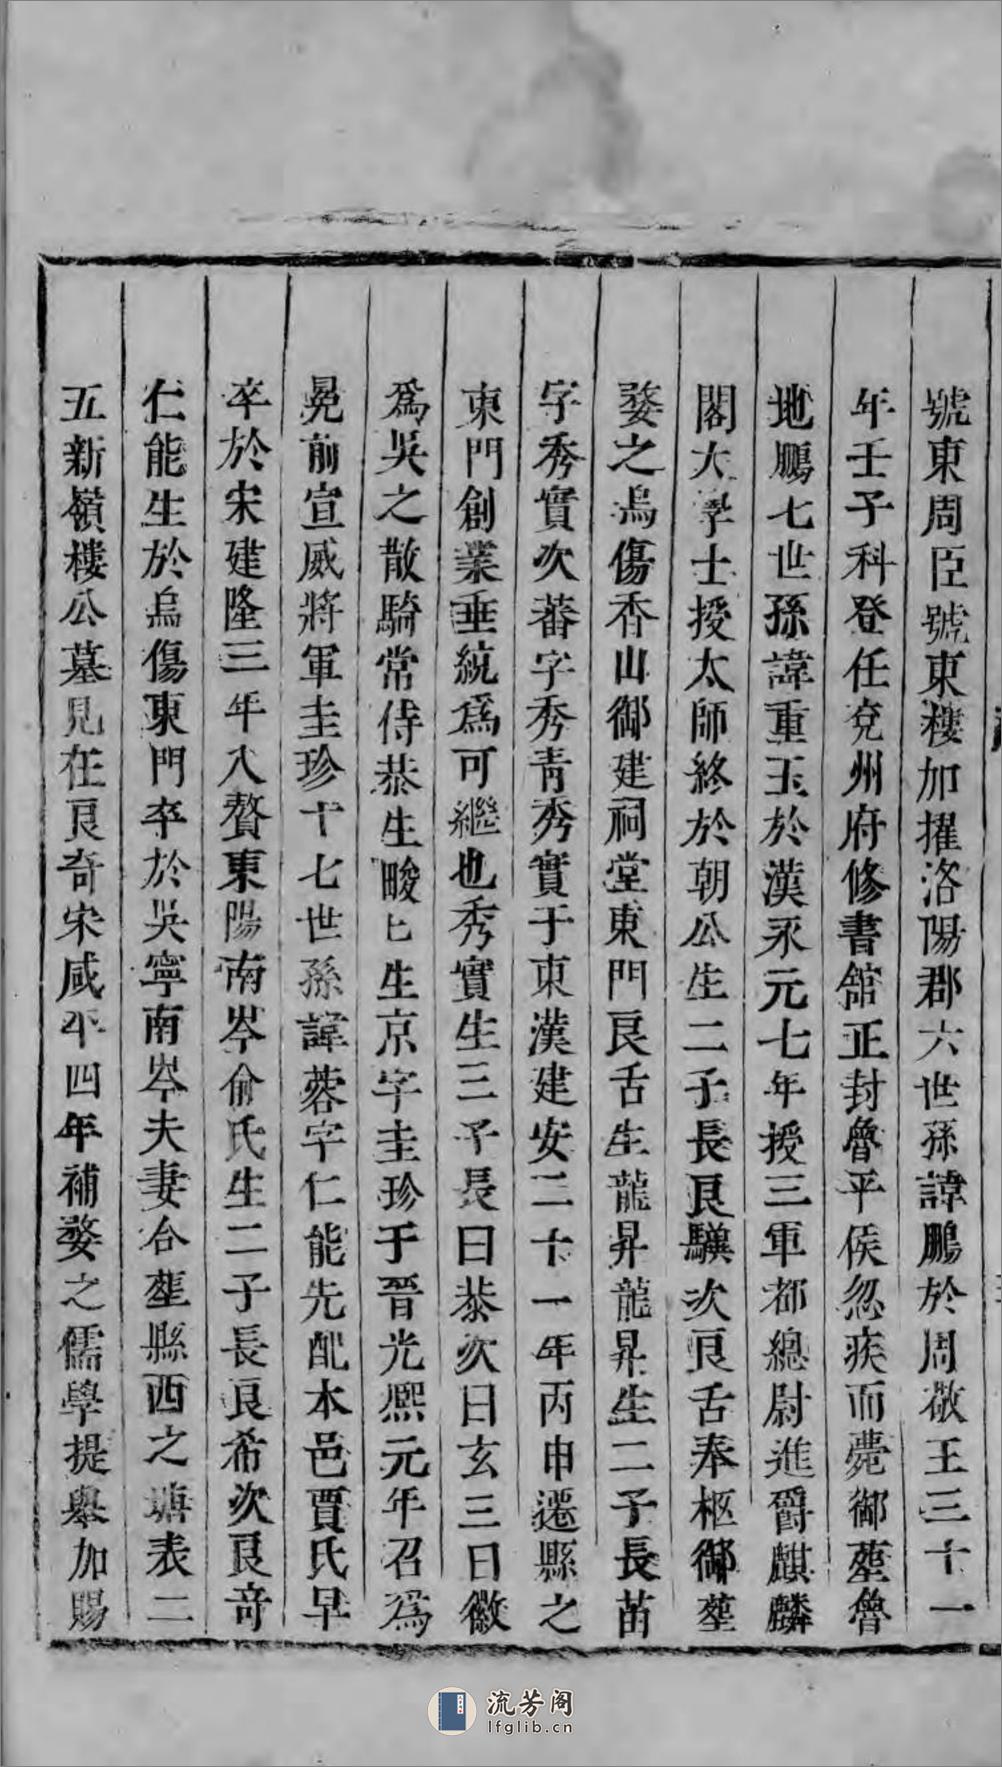 號東周臣號東樓加擢洛陽郡六世孫諱鵬於周敬王三十一
年壬子科登任兗州府修書舘正封魯平侯忽疾而薨御塟魯
地鵬七世孫諱重玉於漢永元七年授三軍都總尉進爵麒麟
閣大學士授太師終於朝公生二子長良驥次良舌奉柩御塟
婺之烏傷香山御建祠堂東門良舌生龍昇龍昇生二子長苗
字秀實次蕃字秀青秀實于東漢建安二十一年丙申遷縣之
東門創業垂統爲可繼也秀實生三子長曰恭次曰玄三曰徽
爲吳之散騎常侍恭生畯匕生京字圭珍于晉光熙元年召爲
晃前宣威將軍圭珍十七世孫諱蓉字仁能先配本邑賈氏早
卒於宋建隆三年入贅東陽南岑俞氏生二子長良希次良奇
仁能生於烏傷東門卒於吳寧南岑夫妻合塟縣西之塘表二
五新嶺樓公墓見在良奇宋咸平四年補婺之儒學提舉加賜
流芳阁
lfglib.cn